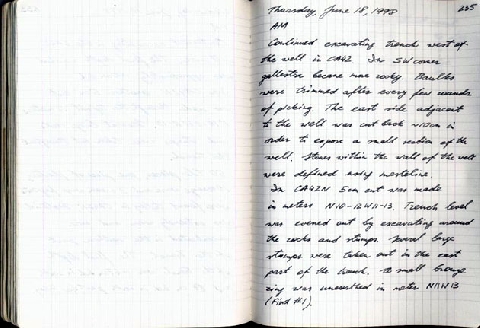 Thursday, June 18, 1998 235
AM
Continued excavating trench west of
the well in CA42 In SW corner
gallestra became more rocky Baulks
were trimmed after every few rounds
of picking The east side adjacent
to the well was cut back 10cm in
order to expose a small section of the
well. Stones within the wall of the well
were defined using
In CA42N 5cm cut was made
in meters N10-12W11-13. Trench level
was evened out by excavating around
the rocks and stumps Several large
stumps were taken out in the east
part of the trench. A small bronze
ring was unearthed in meter N11W13
(Find #1).